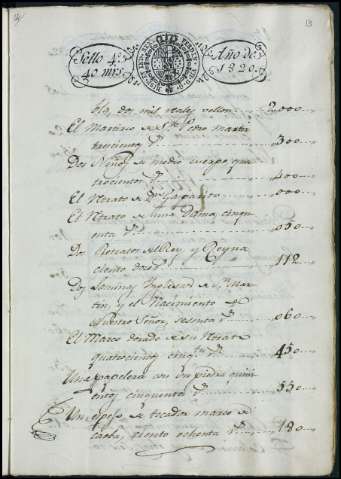 13
Sello 4º
40 mrs.
Año de
1820.
dos mil reales vellon 2,000
El Martirio de Sn. Pedro martir
trescientos rs. 300
Dos Niños de medio cuerpo qua
trocientos rs. 400
El Retrato de 000
El Retrato de una Dama cinq
uenta rs. 050
Dos Retratos del Rey y Reyna
ciento doce 112
Dos laminas Ynglesas de Sn. Mar
tin y el Nacimiento de
Nuestro Señor, sesenta rs. 060
El Marco dorado de su Retrato
quatrocientos cinqta. rs. 450
Una papelera con su piedra quini
entos, cinquenta rs. 550
Un espejo de tocador marco de
caoba, ciento ochenta rs. 180